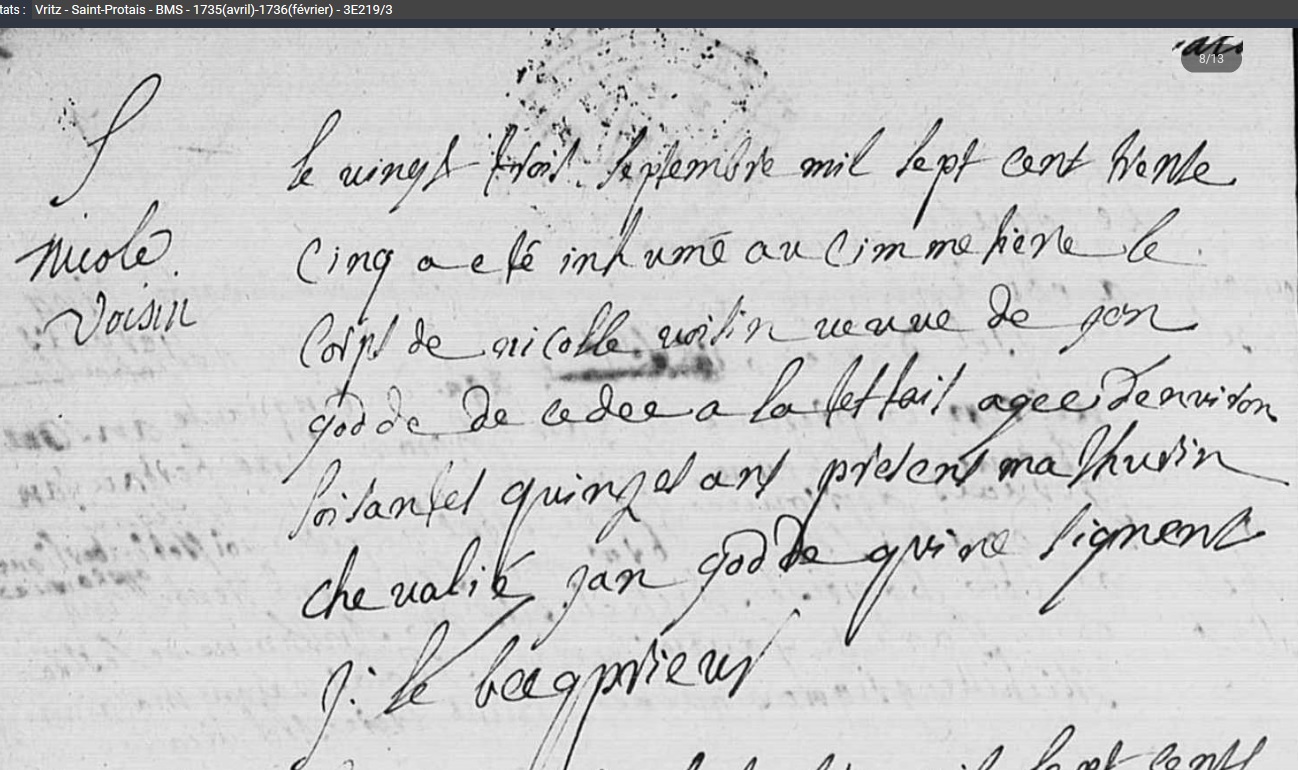 tats : Vritz - Saint-Protais - BMS - 1735(avril)-1736(février) - 3E219/3
8/13
S
nicole
voisin
le vingt trois septembre mil sept cent trente
cinq a eté inhumé au cimmetiere le
corps de nicolle voisin veuve de jan
godde de cedee a la
agee denviron
soisantes quinzes ans present mathurin
chevalié jan godde qui ne signent
j: le becq prieur